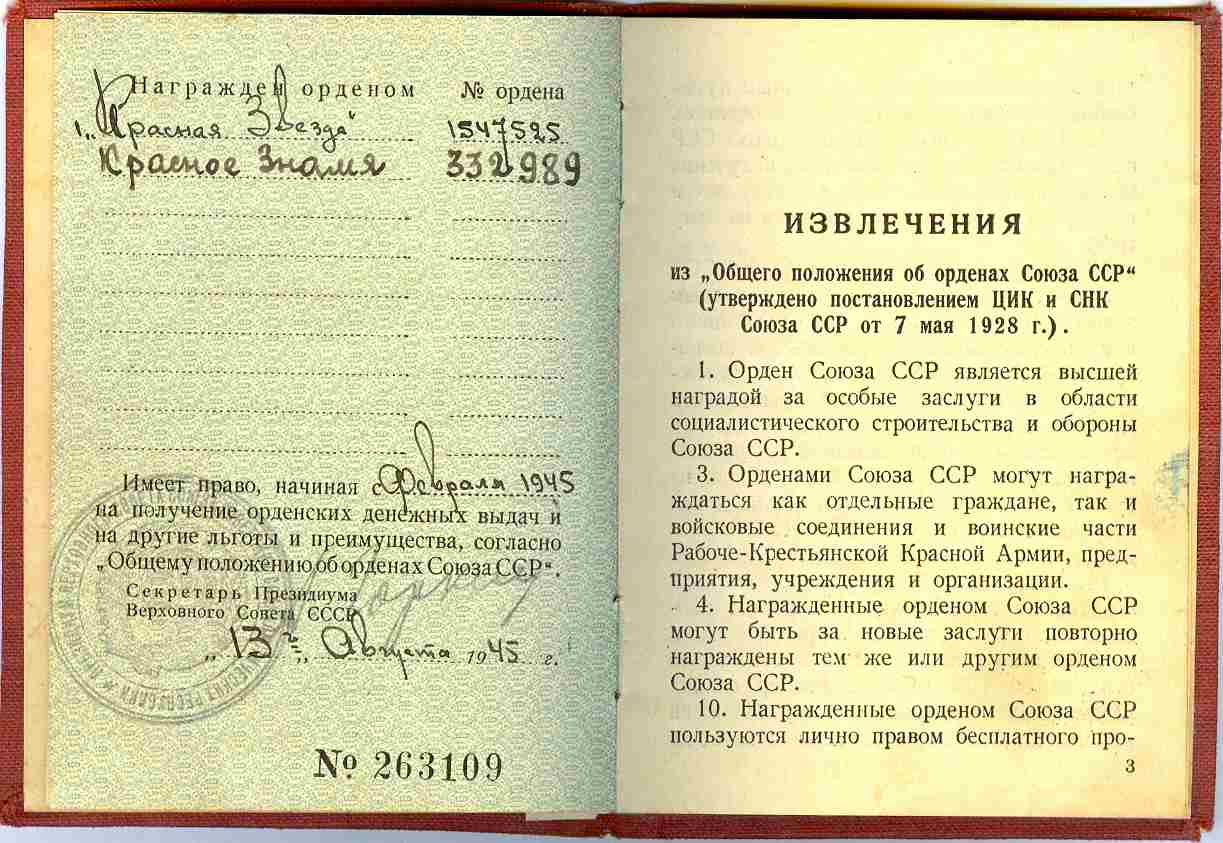 Награжден орденом № ордена
1. „Красная Звезда" 1547525
Красное Знамя 332989
Имеет право, начиная с Февраля 1945
на получение орденских денежных выдач и
на другие льготы и преимущества, согласно
„Общему положению об орденах Союза ССР“.
Секретарь Президиума
Верховного Совета СССР
„13“ Августа 1945 г.
№ 263109
ИЗВЛЕЧЕНИЯ
из „Общего положения об орденах Союза ССР“
(утверждено постановлением ЦИК и СНК
Союза ССР от 7 мая 1928 г.).
1. Орден Союза ССР является высшей
наградой за особые заслуги в области
социалистического строительства и обороны
Союза ССР.
3. Орденами Союза ССР могут награ-
ждаться как отдельные граждане, так и
войсковые соединения и воинские части
Рабоче-Крестьянской Красной Армии, пред-
приятия, учреждения и организации.
4. Награжденные орденом Союза ССР
могут быть за новые заслуги повторно
награждены тем же или другим орденом
Союза ССР.
10. Награжденные орденом Союза ССР
пользуются лично правом бесплатного про-
3